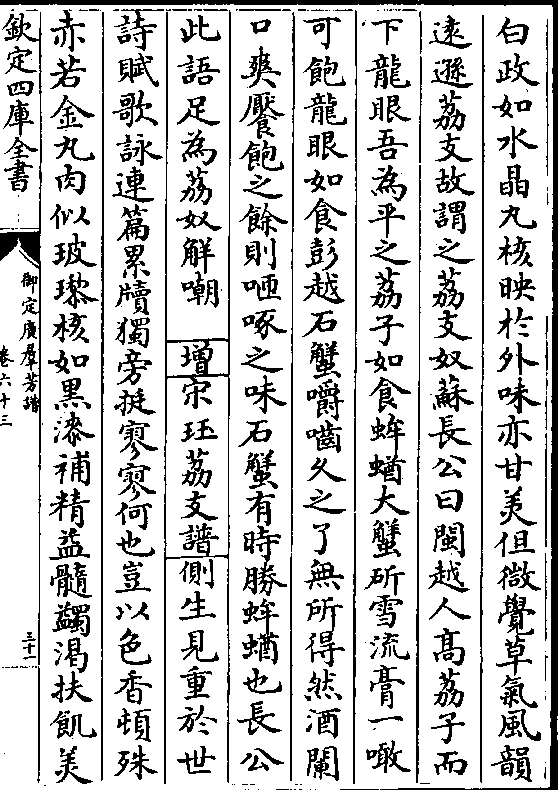 白政如水晶丸核映於外味亦甘美但微覺草氣風韻
遠遜荔支故謂之荔支奴蘇長公曰閩越人高荔子而
下龍眼吾為平之荔子如食蝤蛑大蟹斫雪流膏一噉
可飽龍眼如食彭越石蟹嚼嚙久之了無所得然酒闌
口爽饜飽之餘則咂啄之味石蟹有時勝蝤蛑也長公
此語足為荔奴解嘲 增宋珏荔支譜側生見重於世
詩賦歌詠連篇累牘獨旁挺寥寥何也豈以色香頓殊
赤若金丸肉似玻瓈核如黒漆補精益髓蠲渴扶飢美
欽定四庫全書
御定廣羣芳譜
卷六十三
三十一